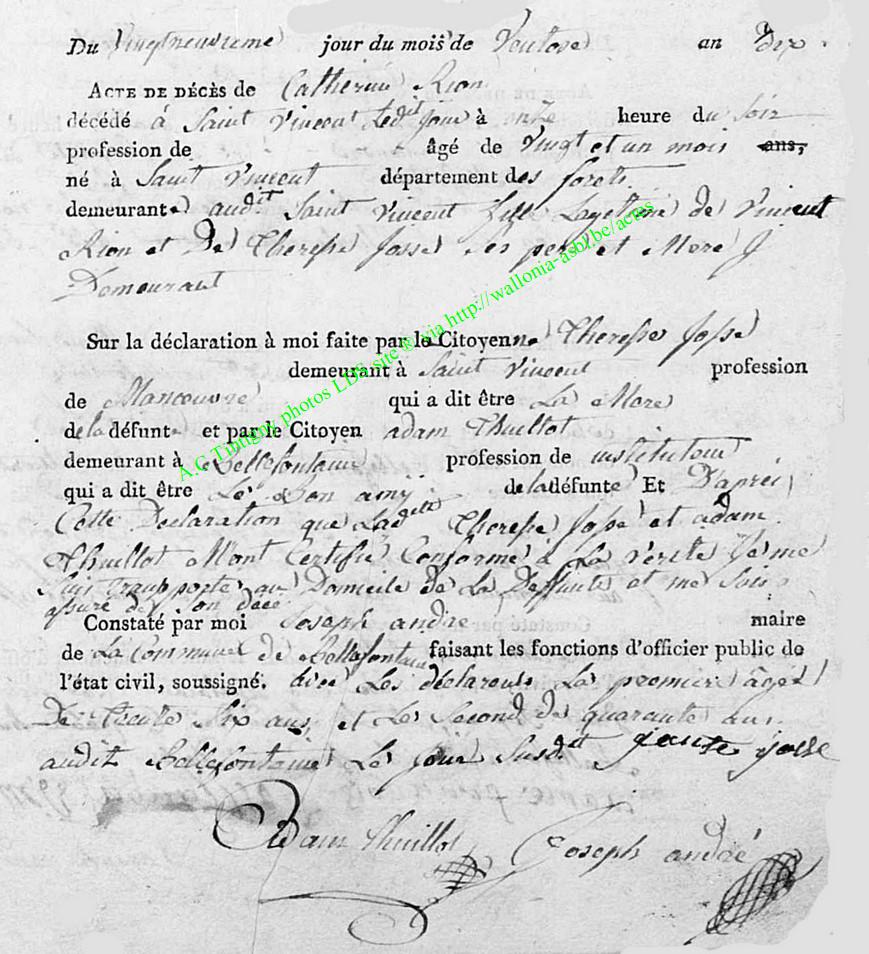 Du Vingtneuvieme jour du mois de Ventose an Dix.
ACTE DE DÉCÈS de Catherine Rion
décédé à Saint Vincent Ledit jour à onze heure du soir
profession de - âgé de vingt et un mois ans,
né à Saint Vincent département des forets.
demeurante audit Saint Vincent fille Legitime de Vincent
Rion et De Therese Josse ses pere et Mere y
Demeurant
Sur la déclaration à moi faite par le Citoyenne Therese Josse
demeurant à Saint Vincent profession
de Manoeuvre qui a dit être La Mere
de la défunte et par le Citoyen adam Thuillot
demeurant à Bellefontaine profession de instituteur
qui a dit être Le Bon amij de la défunte Et D'aprés
Cette Declaration que Ladite Therese Josse et adam
Thuillot M'ont Certifié Conforme à La verité Je me
suis transporté au Domicile de La Deffunte et me suis
assuré de son décé
Constaté par moi Joseph andre maire
de La Commune de Bellefontaine faisant les fonctions d'officier public de
l'état civil, soussigné. avec Les déclareurs La premiere âgée
De trente Six ans et Le Second de quarante ans
audit Bellefontaine Le jour Susdit josse
Adam thuillot Joseph andré
A.C Tintigny photos LDS site © via http://wallonia-asbl.be/actes